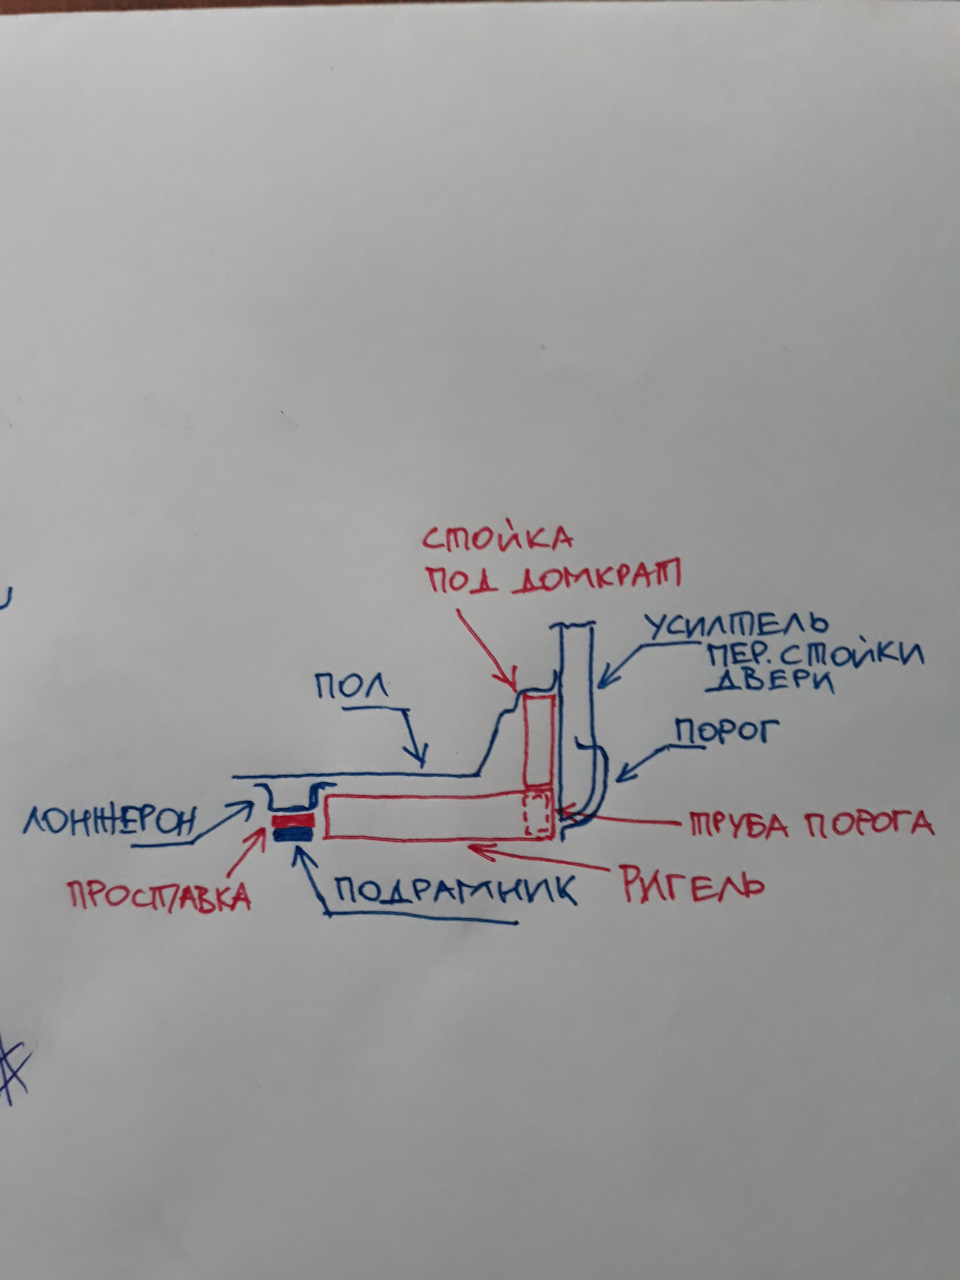 СТОЙКА
ПОД ДОМКРАТ
УСИЛТЕЛЬ
ПЕР. СТОЙКИ
ДВЕРИ
ПОЛ
ПОРОГ
ЛОНЖЕРОН
ТРУБА ПОРОГА
ПРОСТАВКА
ПОДРАМНИК
РИГЕЛЬ